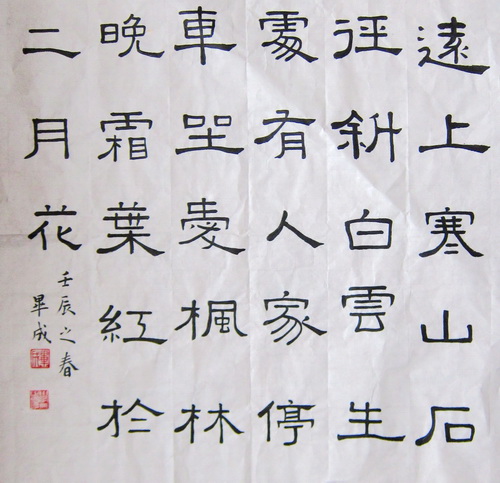 遠上寒山石
徑斜白雲生
處有人家停
車坐愛楓林
晚霜葉紅於
二月花
壬辰之春
畢成